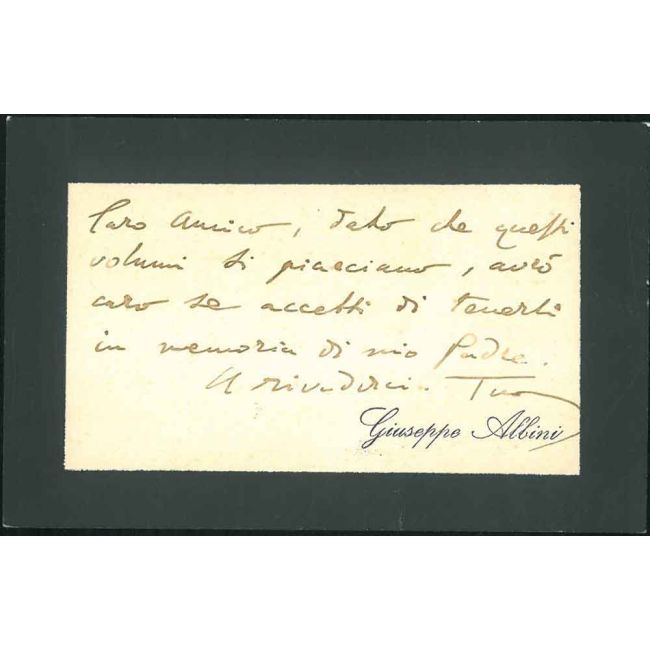 Caro Amico, dato che questi
volumi ti piacciano, avrò
caro se accetti di tenerli
in memoria di mio Padre.
A rivederci. Tuo
Giuseppe Albini